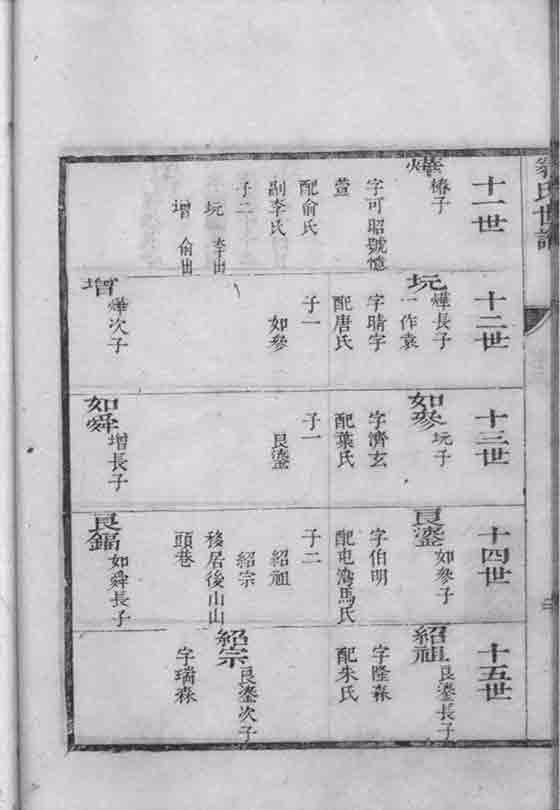 氏世譜
十一世
燁
椿子
字可昭號憶
萱
配俞氏
副李氏
子二
玩 李出
增 俞出
十二世
玩
燁長子
一作袁
字晴字
配唐氏
子一
如參
增
燁次子
十三世
如參
玩子
字濟玄
配葉氏
子一
良鎏
如舜
增長子
十四世
良鎏
如參子
字伯明
配屯灣馬氏
子二
紹祖
紹宗
移居後山山
頭巷
良鎘
如舜長子
十五世
紹祖
良鎏長子
字隆森
配朱氏
紹宗
良鎏次子
字瑞森